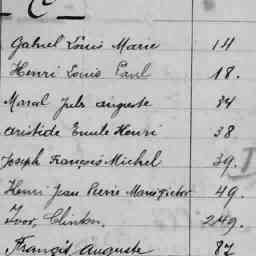 C
Gabriel Louis Marie 14
Henri Louis Paul 18.
Jules Auguste 34
Aristide Emile Henri 38
Joseph François Michel 39.
Henri Jean Pierre Marie Victor 49.
Ivor, Clinton, 249.
Francis Auguste 87